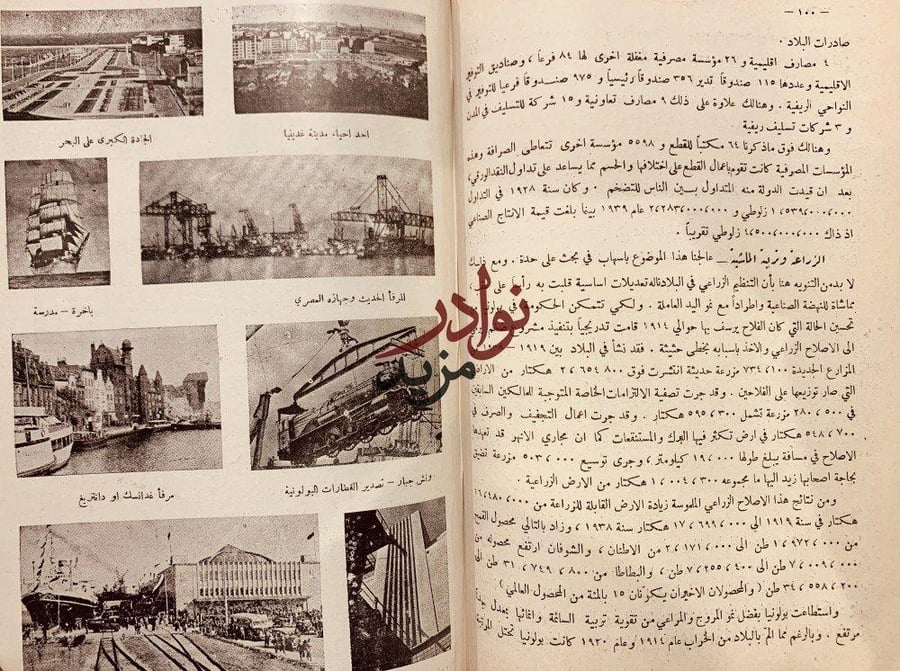 — ١٠٠ —
صادرات البلاد .
٤ مصارف اقليمية و ٢٦ مؤسسة مصرفية مغفلة اخرى لها ٨٤ فرعاً ، وصناديق التوفير
الاقليمية وعددها ١١٥ صندوقاً تدير ٣٥٦ صندوقاً رئيسياً و ٩٧٥ صندوقاً فرعياً للتوفير في
النواحي الريفية . وهنالك علاوة على ذلك ٩ مصارف تعاونية و ١٥ شركة للتسليف في المدن
و ٣ شركات تسليف ريفية
وهنالك فوق ماذكرنا ٦٤ مكتباً للقطع و ٥٥٩٨ مؤسسة اخرى تتعاطى الصرافة وهذه
المؤسسات المصرفية كانت تقوم باعمال القطع على اختلافها والحسم مما يساعد على تداول النقد الورقي ،
بعد ان قيدت الدولة منه المتداول بين الناس للتضخم . وكان سنة ١٩٢٨ في التداول
١،٥٣٩،٠٠٠،٠٠٠ زلوطي و ٢،٢٨٣،٠٠٠،٠٠٠ عام ١٩٣٩ بينما بلغت قيمة الانتاج الصناعي
اذ ذاك ٤،٥٠٠،٠٠٠،٠٠٠ زلوطي تقريباً .
الزراعة وتربية الماشية — عالجنا هذا الموضوع باسهاب في بحث على حدة . ومع ذلك
لا بد من التنويه هنا بأن التنظيم الزراعي في البلاد ناله تعديلات اساسية قلبت به رأساً على
مماشاة للنهضة الصناعية واطراداً مع نمو اليد العاملة . ولكي تتمكن الحكومة
تحسين الحالة التي كان الفلاح يرسف بها حوالي ١٩١٤ قامت تدريجياً بتنفيذ
الى الاصلاح الزراعي والاخذ باسبابه بخطى حثيثة . فقد نشأ في البلاد بين ١٩١٩
المزارع الجديدة ٧٣٤،١٠٠ مزرعة حديثة انتشرت فوق ٢،٦٥٤،٨٠٠ هكتار من الاراضي
التي صار توزيعها على الفلاحين . وقد جرت تصفية الالتزامات الخاصة المتوجبة للمالكين السابقين
في ٢٨٠،٥٠٠ مزرعة تشمل ٥٩٥،٣٠٠ هكتار . وقد جرت اعمال التجفيف والصرف في
٥٤٨،٧٠٠ هكتار في ارض تكثر فيها البرك والمستنقعات كما ان مجاري الانهر قد تعهدها
الاصلاح في مسافة يبلغ طولها ١٩،٠٠٠ كيلومتر ، وجرى توسيع ٥٠٣،٠٠٠ مزرعة تضيق
بحاجة اصحابها زيد اليها ما مجموعه ١،٠٠٤،٣٠٠ هكتار من الارض الزراعية .
ومن نتائج هذا الاصلاح الزراعي الملموسة زيادة الارض القابلة للزراعة من ١٦،٤٨٠،٠٠٠
هكتار في سنة ١٩١٩ الى ١٧،٦٩٩،٠٠٠ سنة ١٩٣٨ ، وزاد بالتالي محصول القمح
من ١،٩٧٢،٠٠٠ طن الى ٢،١٧١،٠٠٠ من الاطنان ، والشوفان ارتفع محصوله من
٧،٠٠٩،٠٠٠ طن الى ٧،٢٥٥،٤٠٠ طن ، والبطاطا من ٣١،٧٤٩،٨٠٠ طن الى
٣٤،٥٥٨،٢٠٠ طن ( والمحصولان الاخيران يكوّنان ١٥ بالمئة من المحصول العالمي )
واستطاعت بولونيا بفضل نمو المروج والمراعي من تقوية تربية السائمة وانمائها بمعدل
مرتفع ، وبالرغم مما المّ بالبلاد من الخراب عام ١٩١٤ وعام ١٩٢٠ كانت بولونيا تحتل المرتبة
احد احياء مدينة غدينيا
الجادة الكبرى على البحر
المرفأ الحديث وجهازه العصري
باخرة – مدرسة
ونش جبار – تصدير القطارات البولونية
مرفأ غدانسك او دانتزيغ
نوادر
مزيد